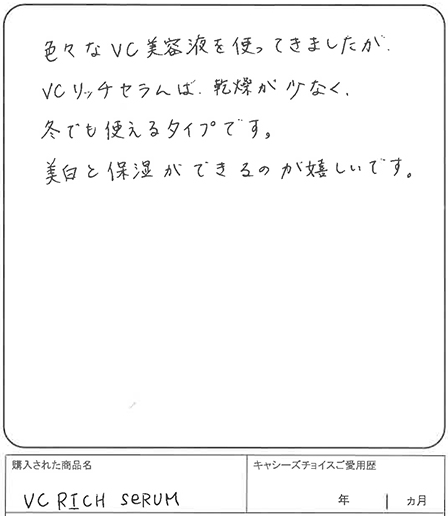 色々なVC美容液を使ってきましたが、
VCリッチセラムは、乾燥が少なく、
冬でも使えるタイプです。
美白と保湿ができるのが嬉しいです。
購入された商品名
キャシーズチョイスご愛用歴
VC RICH SeRUM
年 1 ヵ月